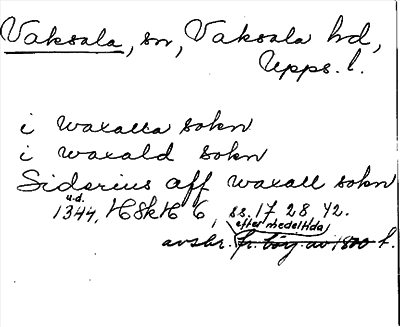 Vaksala, sn, Vaksala hd,
Upps. l.
i waxalla sokn
i waxald sokn
Siderius aff waxall sokn
u.d.
1344, HSkH 6, ss. 17 28 42.
efter medeltida
avskr. fr. börj. av 1800 t.